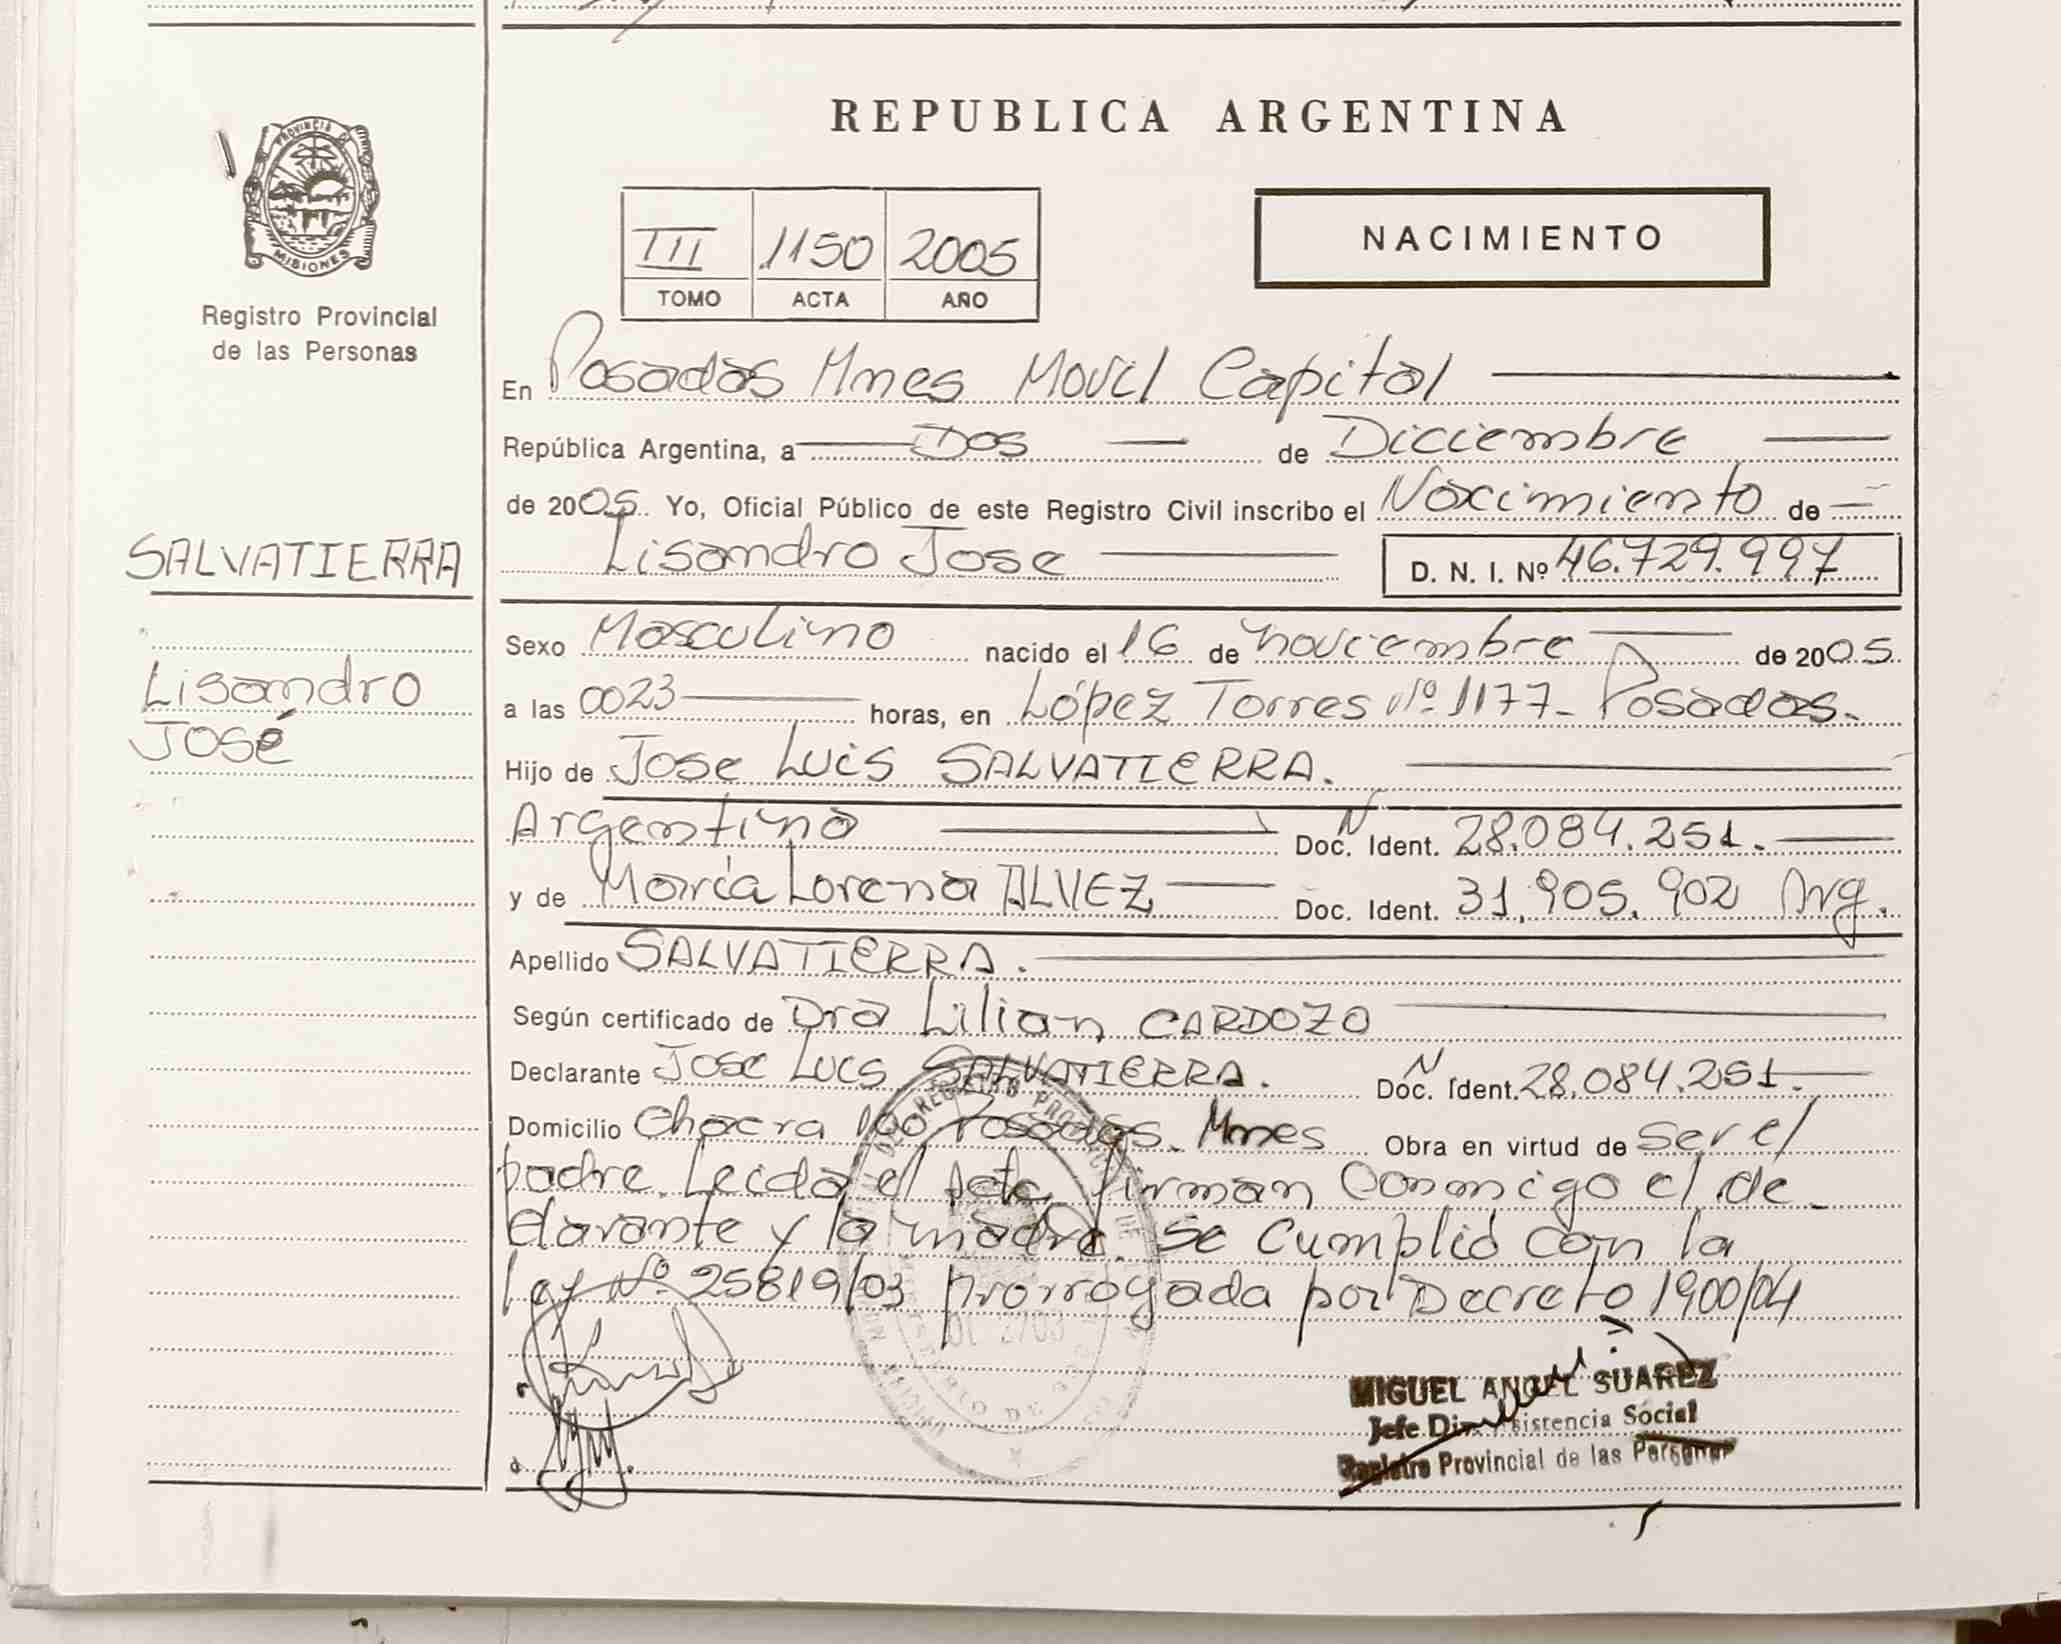 PROVINCIA DE
MISIONES
Registro Provincial
de las Personas
SALVATIERRA
Lisandro
José
REPUBLICA ARGENTINA
III 1150 2005
TOMO ACTA AÑO
NACIMIENTO
En Posadas Mnes Movil Capital
República Argentina, a Dos de Diciembre
de 2005. Yo, Oficial Público de este Registro Civil inscribo el Nacimiento de
Lisandro Jose D. N. I. Nº 46.729.997
Sexo Masculino nacido el 16 de noviembre de 2005.
a las 0023 horas, en López Torres Nº 1177- Posadas.
Hijo de Jose Luis SALVATIERRA.
Argentino Doc. N Ident. 28.084.251.
y de María Lorena ALVEZ Doc. Ident. 31.905.902 Arg.
Apellido SALVATIERRA.
Según certificado de Dra Lilian CARDOZO
Declarante Jose Luis SALVATIERRA. Doc. N Ident. 28.084.251.
Domicilio Chacra 100 Posadas. Mnes Obra en virtud de ser el
padre. Leida el Acta, firman conmigo el de_
clarante y la madre. Se cumplió con la
ley Nº 25819/03 prorrogada por Decreto 1900/04
MIGUEL ANGEL SUAREZ
Jefe Asistencia Social
Registro Provincial de las Personas